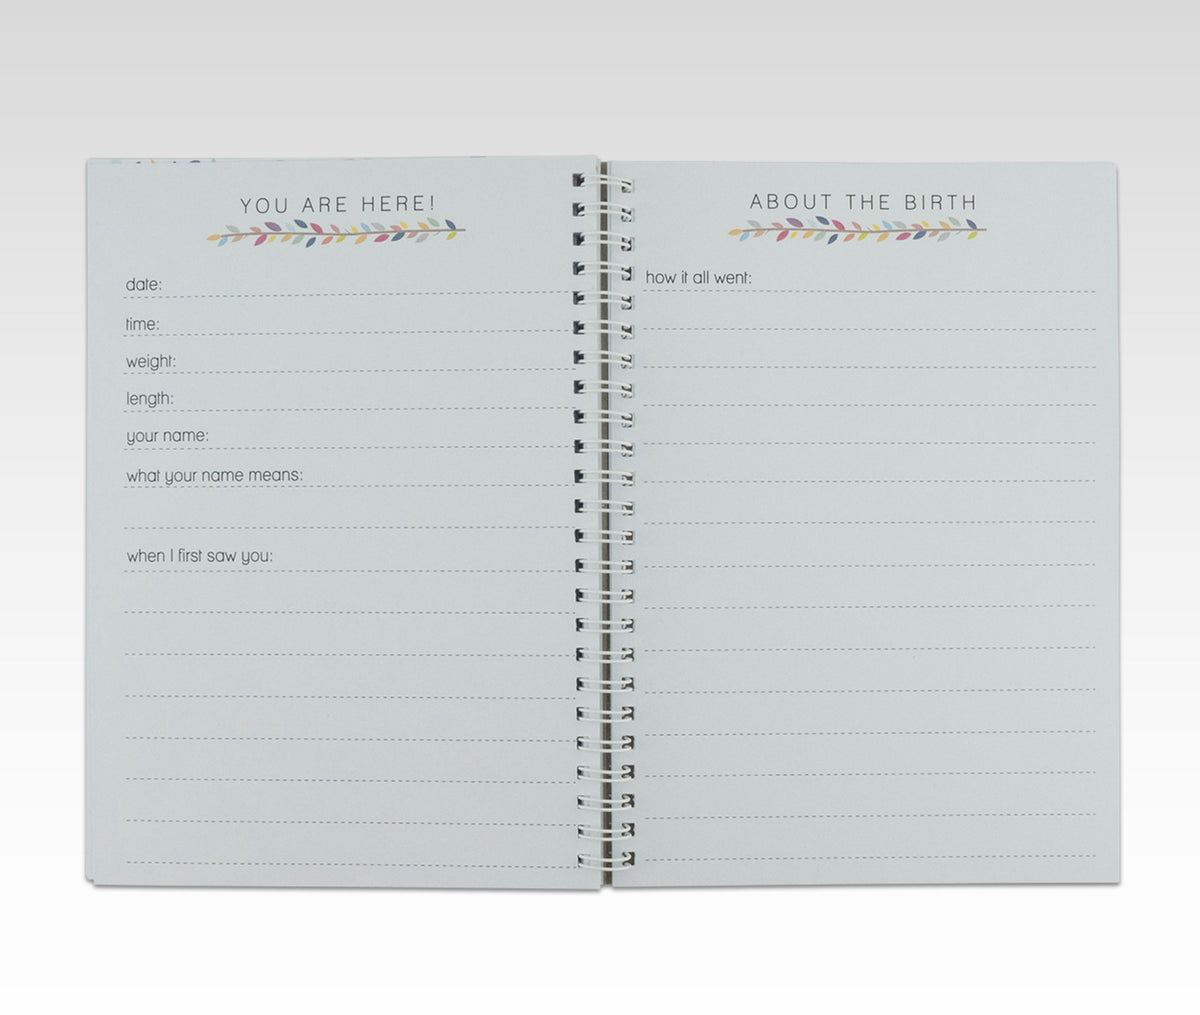 YOU ARE HERE!
date:
time:
weight:
length:
your name:
what your name means:
when I first saw you:
ABOUT THE BIRTH
how it all went: